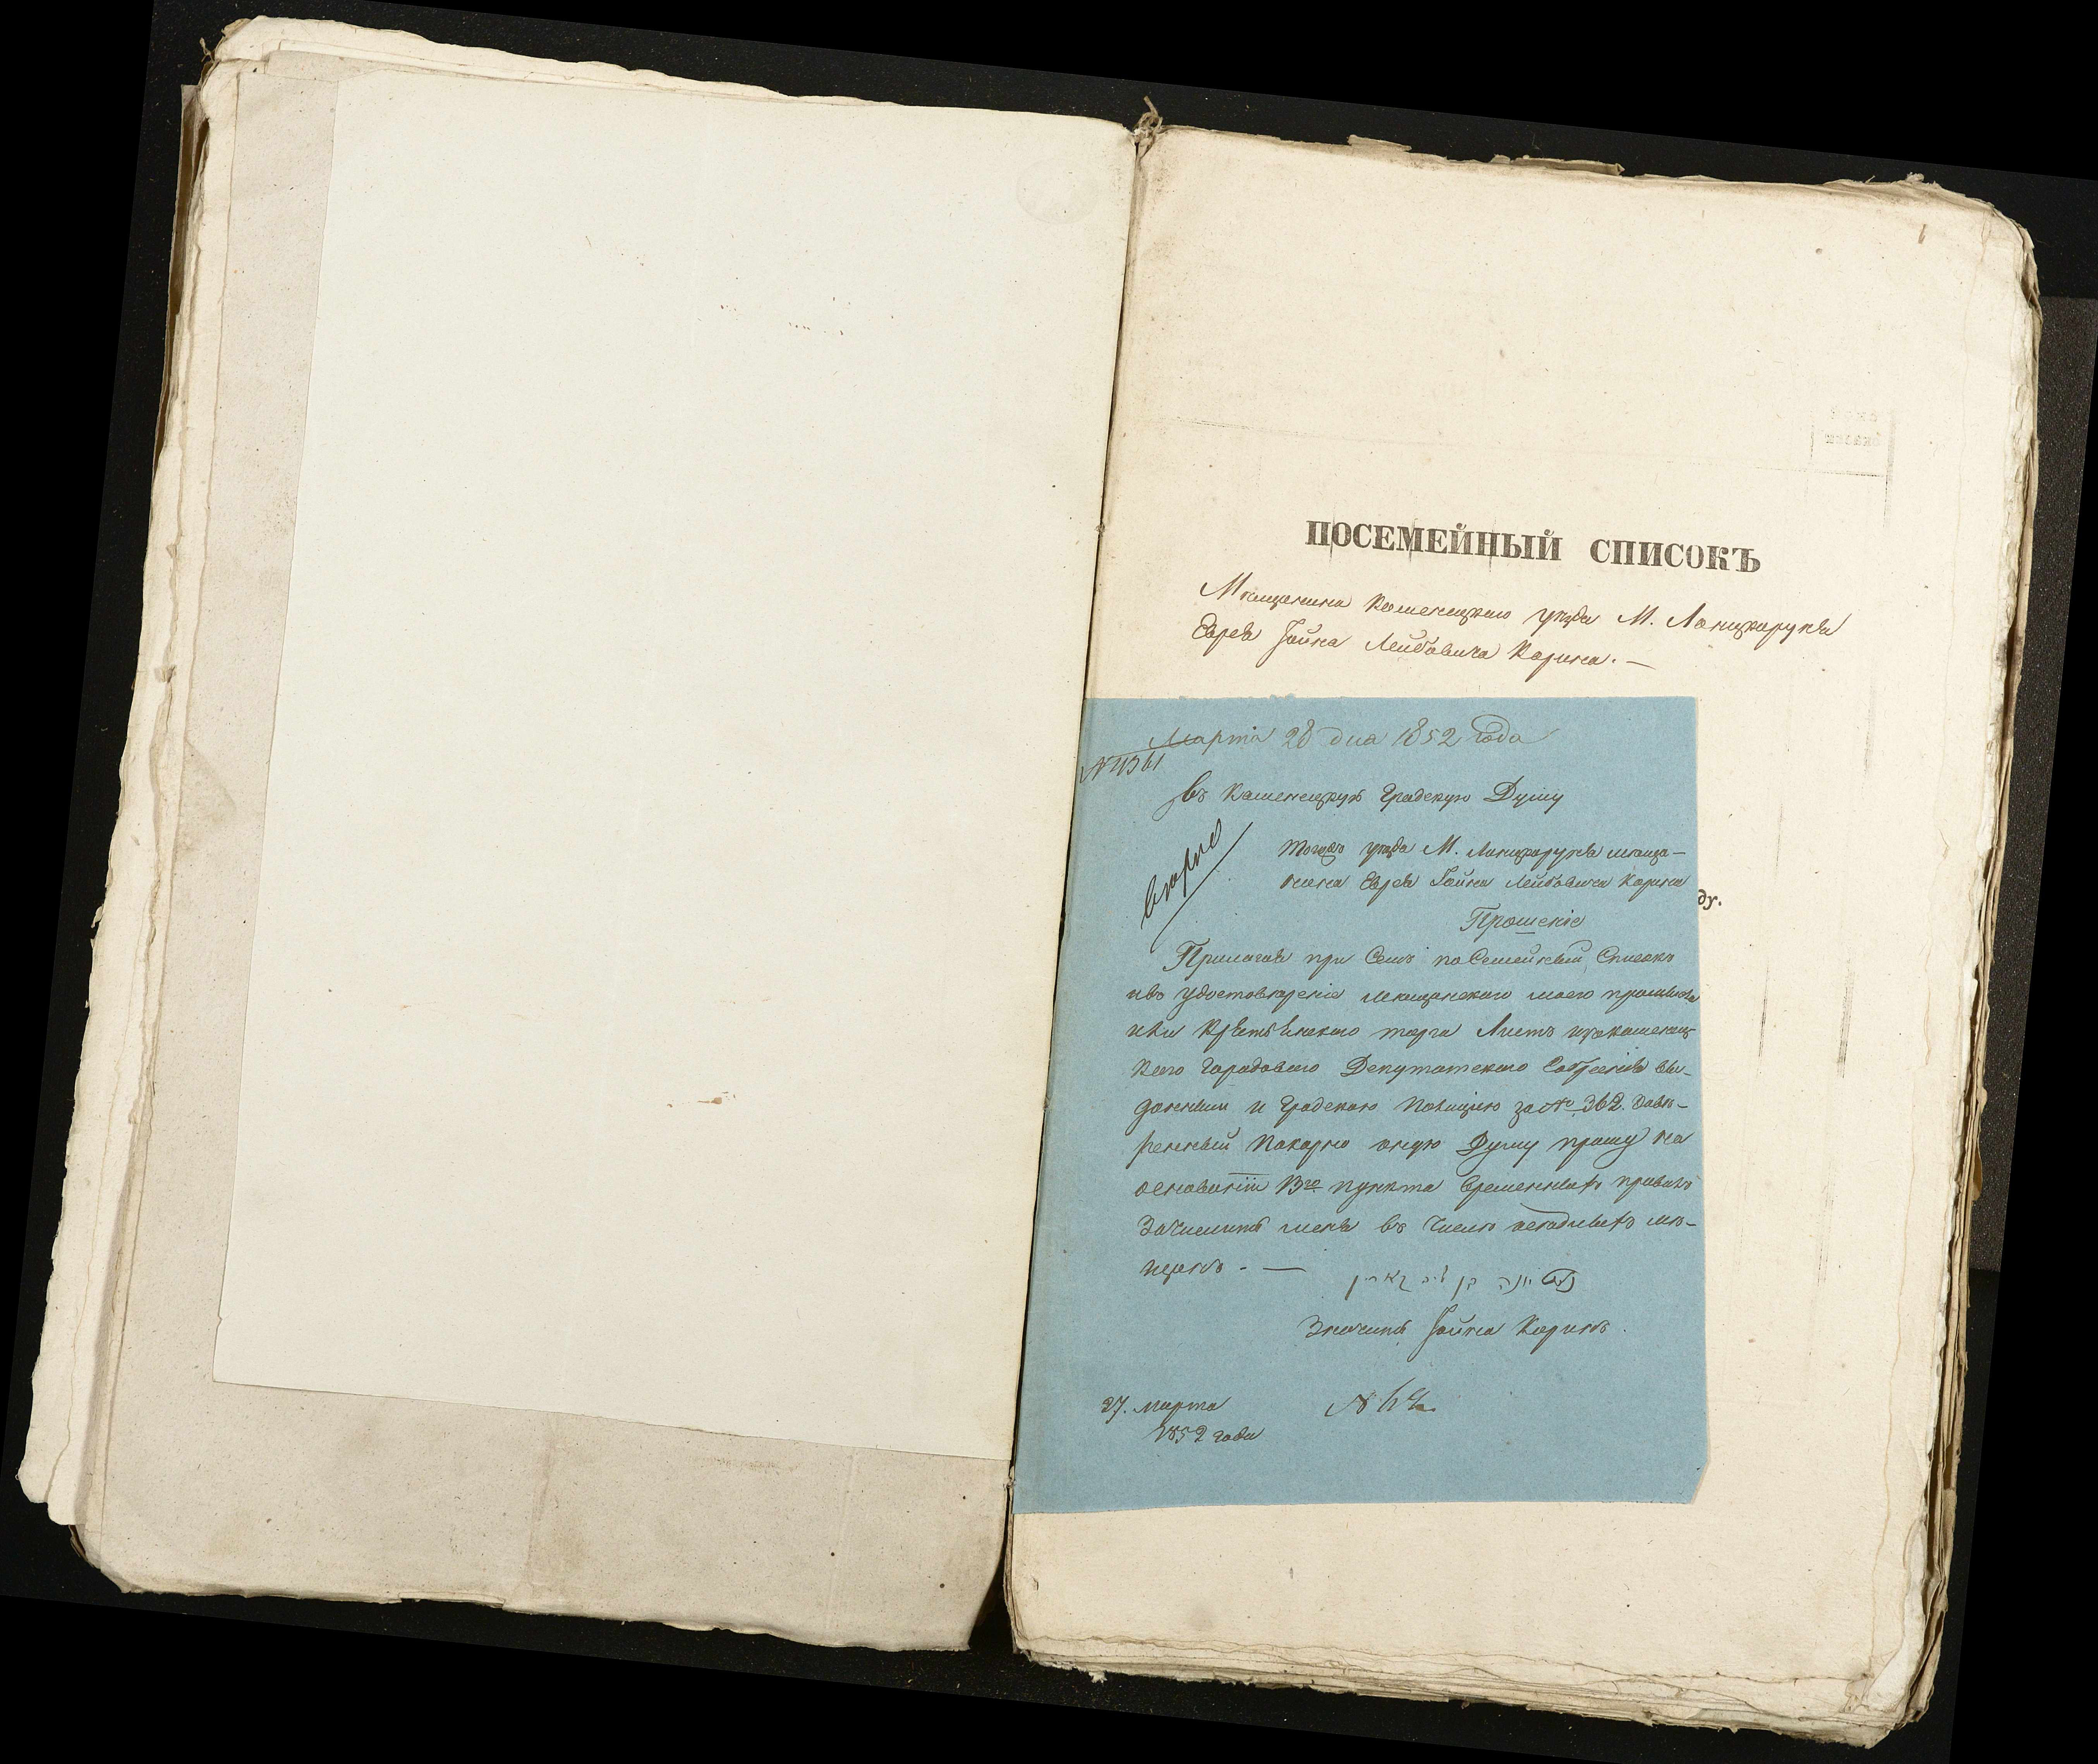 1
ПОСЕМЕЙНЫЙ СПИСОКЪ
Мѣщанина Каменецкаго уѣзда М. Ланцкоруня
Еврея Іойна Лейбовича Корина. —
Марта 28 дня 1852 года
№ 1361
Въ Каменецкую Градскую Думу
тогожъ уѣзда М. Ланцкоруня мѣща-
нина Еврея Іойны Лейбовича Корина
ду.
Прошеніе
Прилагая при семъ посемейный Списокъ
ивъ удостовѣреніе мѣщанского моего
торга Листъ изъ Каменец
кого Городового Депутатского Собранія вы-
данный и Градскою Полиціею за № 362. завѣ-
ренный покорно оную Думу прошу на
основаніи 13го пункта временныхъ правилъ
Зачислить меня въ число осѣдлыхъ мѣ-
щанъ. —
יונה בן ליב קארין
Значитъ Іойна Коринъ.
27. марта
1852 года
№